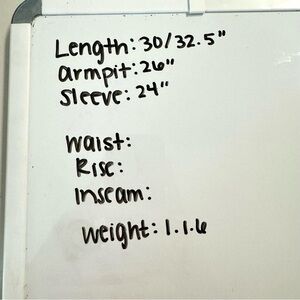 Length: 30/32.5"
armpit: 26"
Sleeve: 24"
waist:
Rise:
Inseam:
weight: 1.1.6